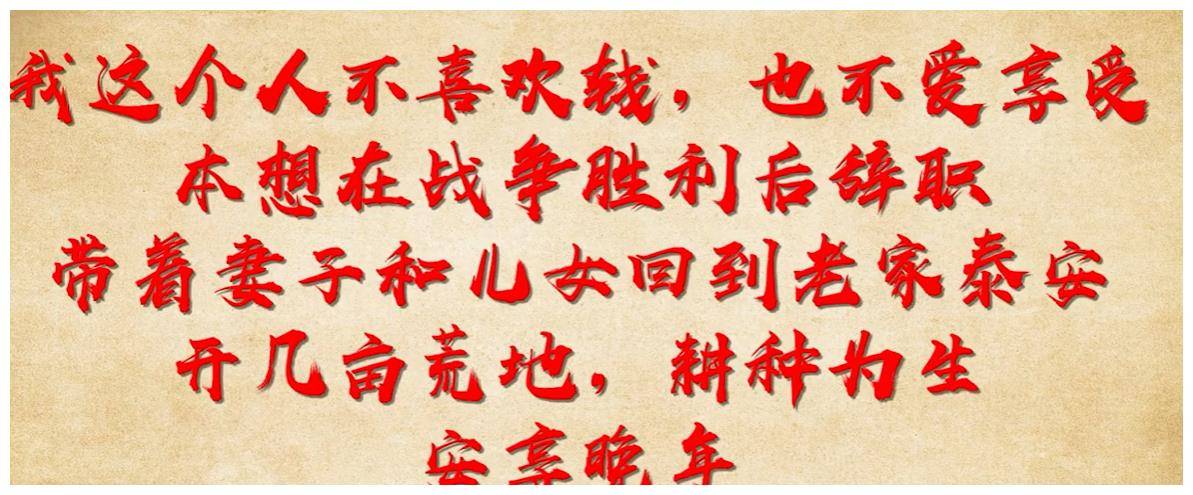 我这个人不喜欢钱，也不爱享受
本想在战争胜利后辞职
带着妻子和儿女回到老家泰安
开几亩荒地，耕种为生
安享晚年